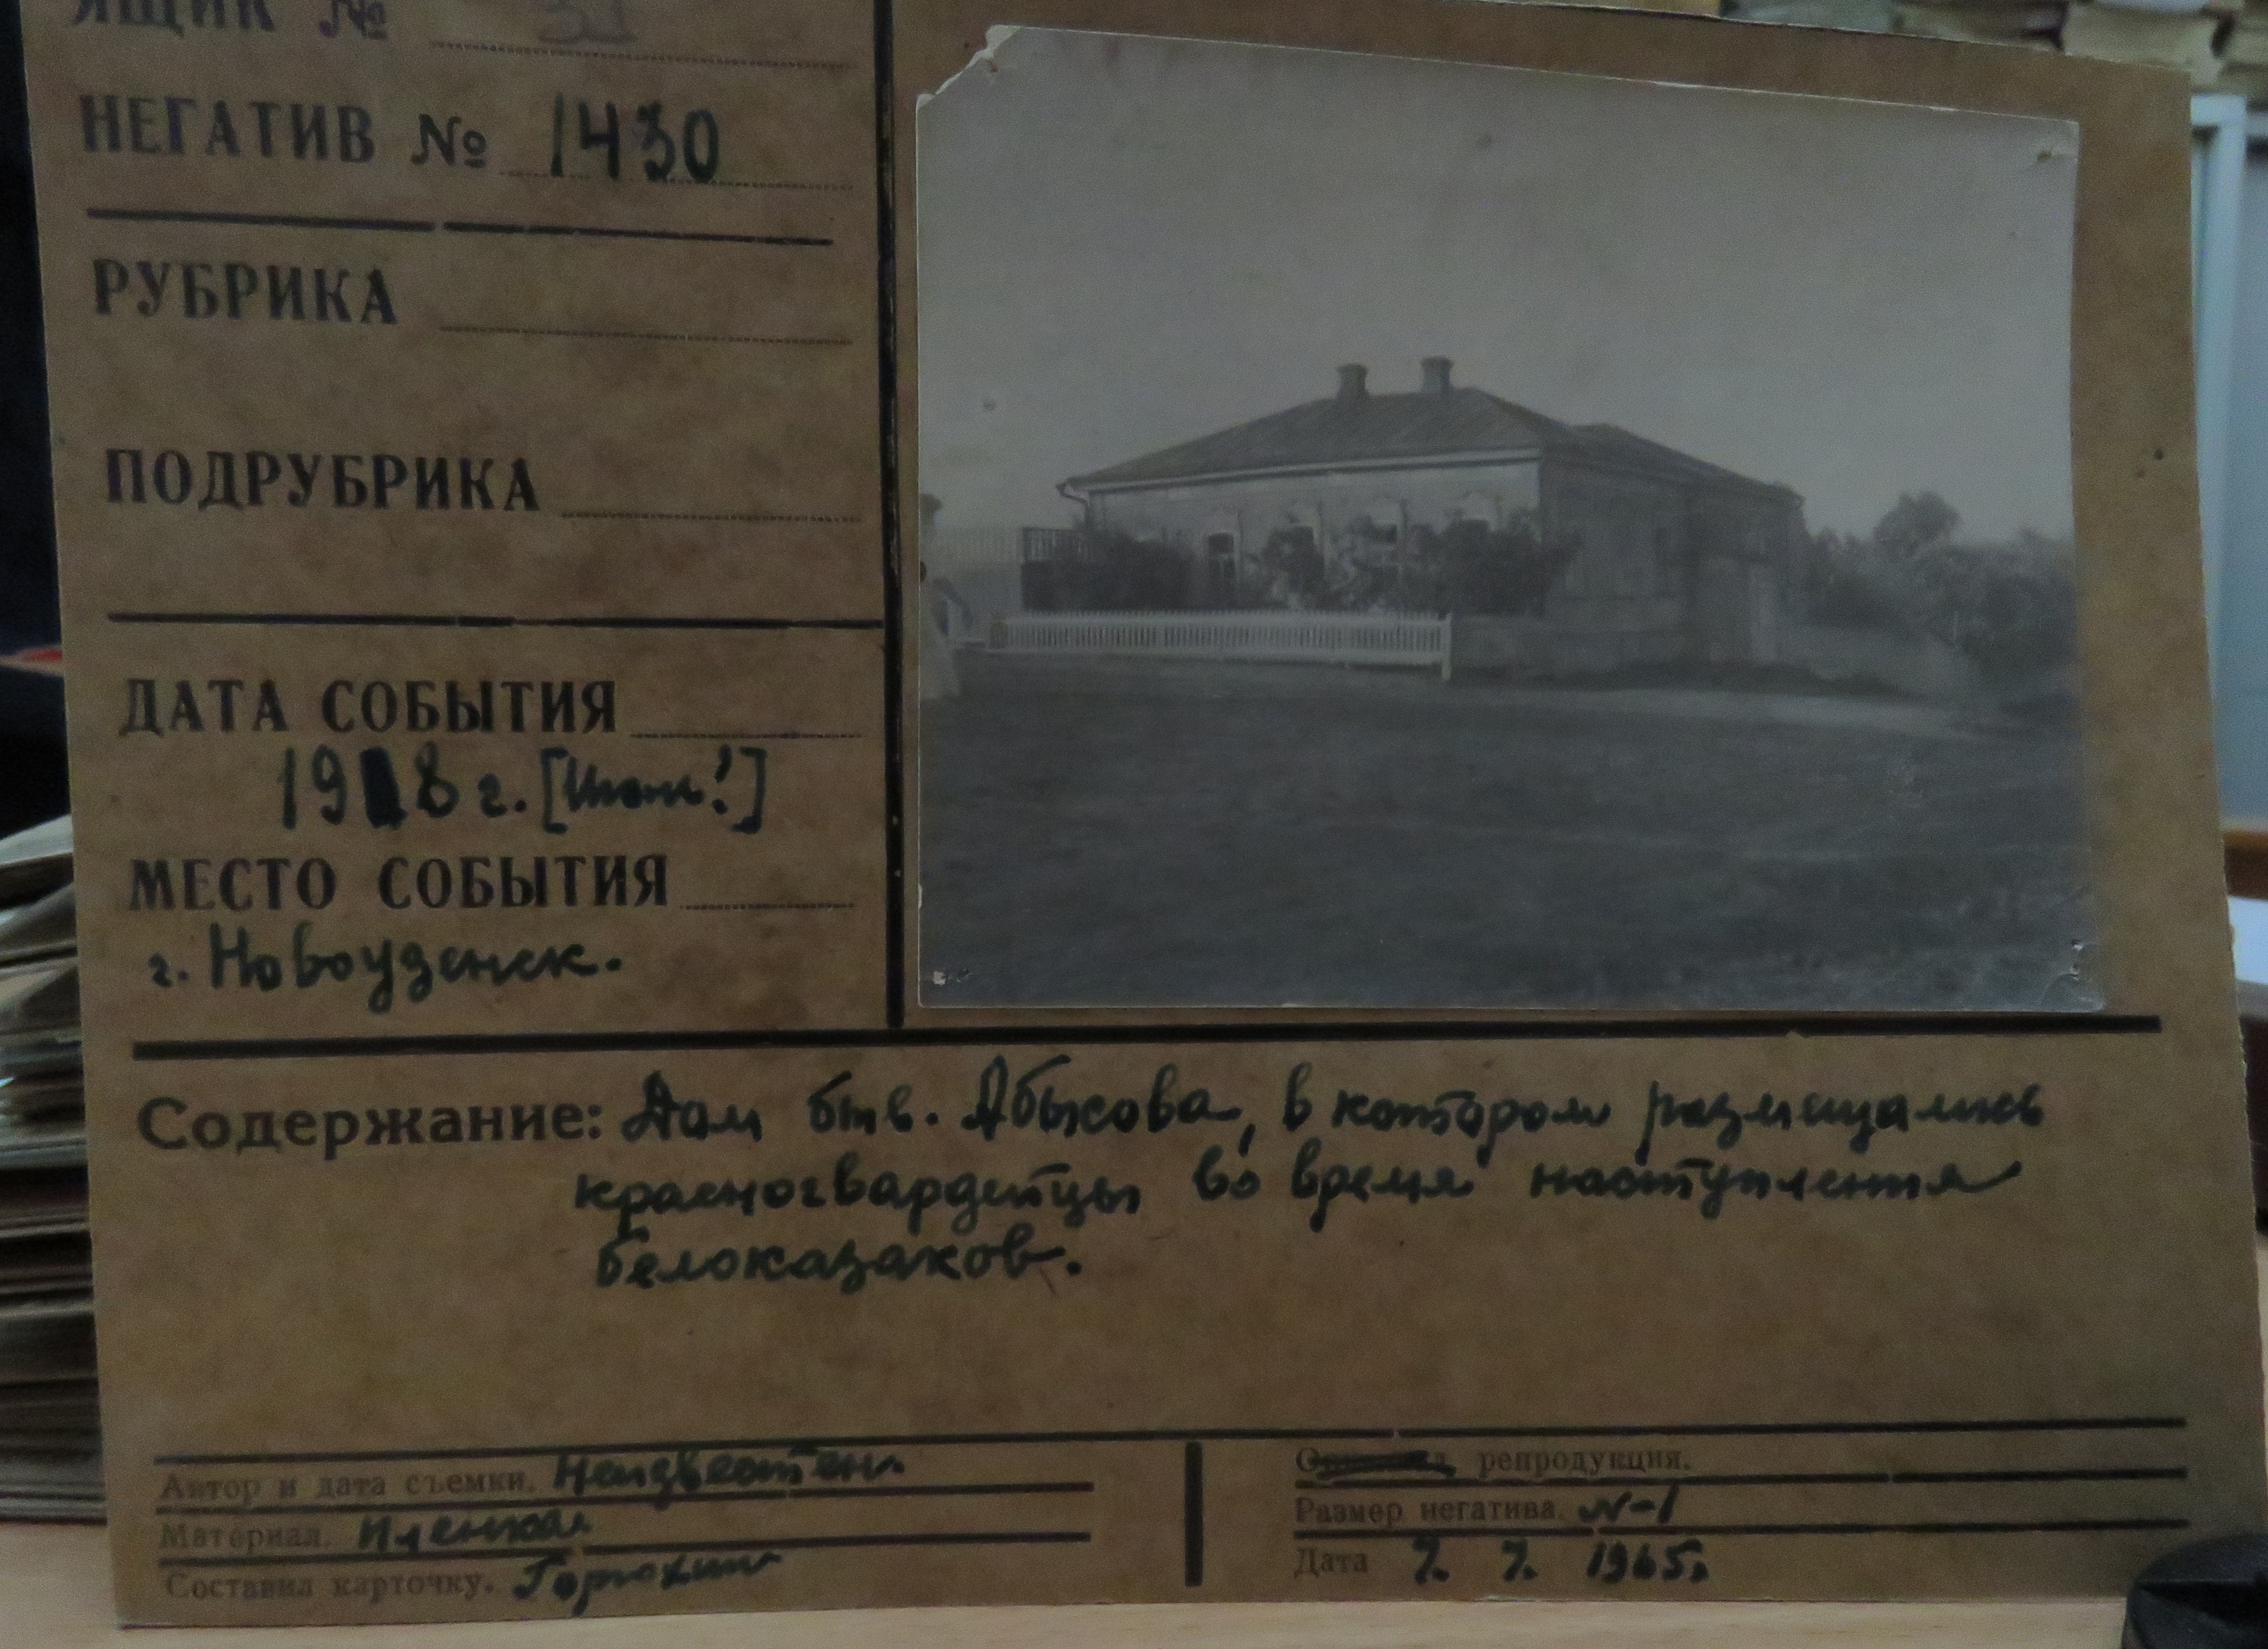 ЯЩИК №
НЕГАТИВ № 1430
РУБРИКА
ПОДРУБРИКА
ДАТА СОБЫТИЯ
1918 г.
МЕСТО СОБЫТИЯ
г. Новоузенск.
Содержание: Дом быв. Абысова, в котором размещались
красногвардейцы во время наступления
белоказаков.
Автор и дата съемки. Неизвестен
Материал. Пленка
Составил карточку. Горюхин
репродукция.
Размер негатива. N-1
Дата 7. 7. 1965г